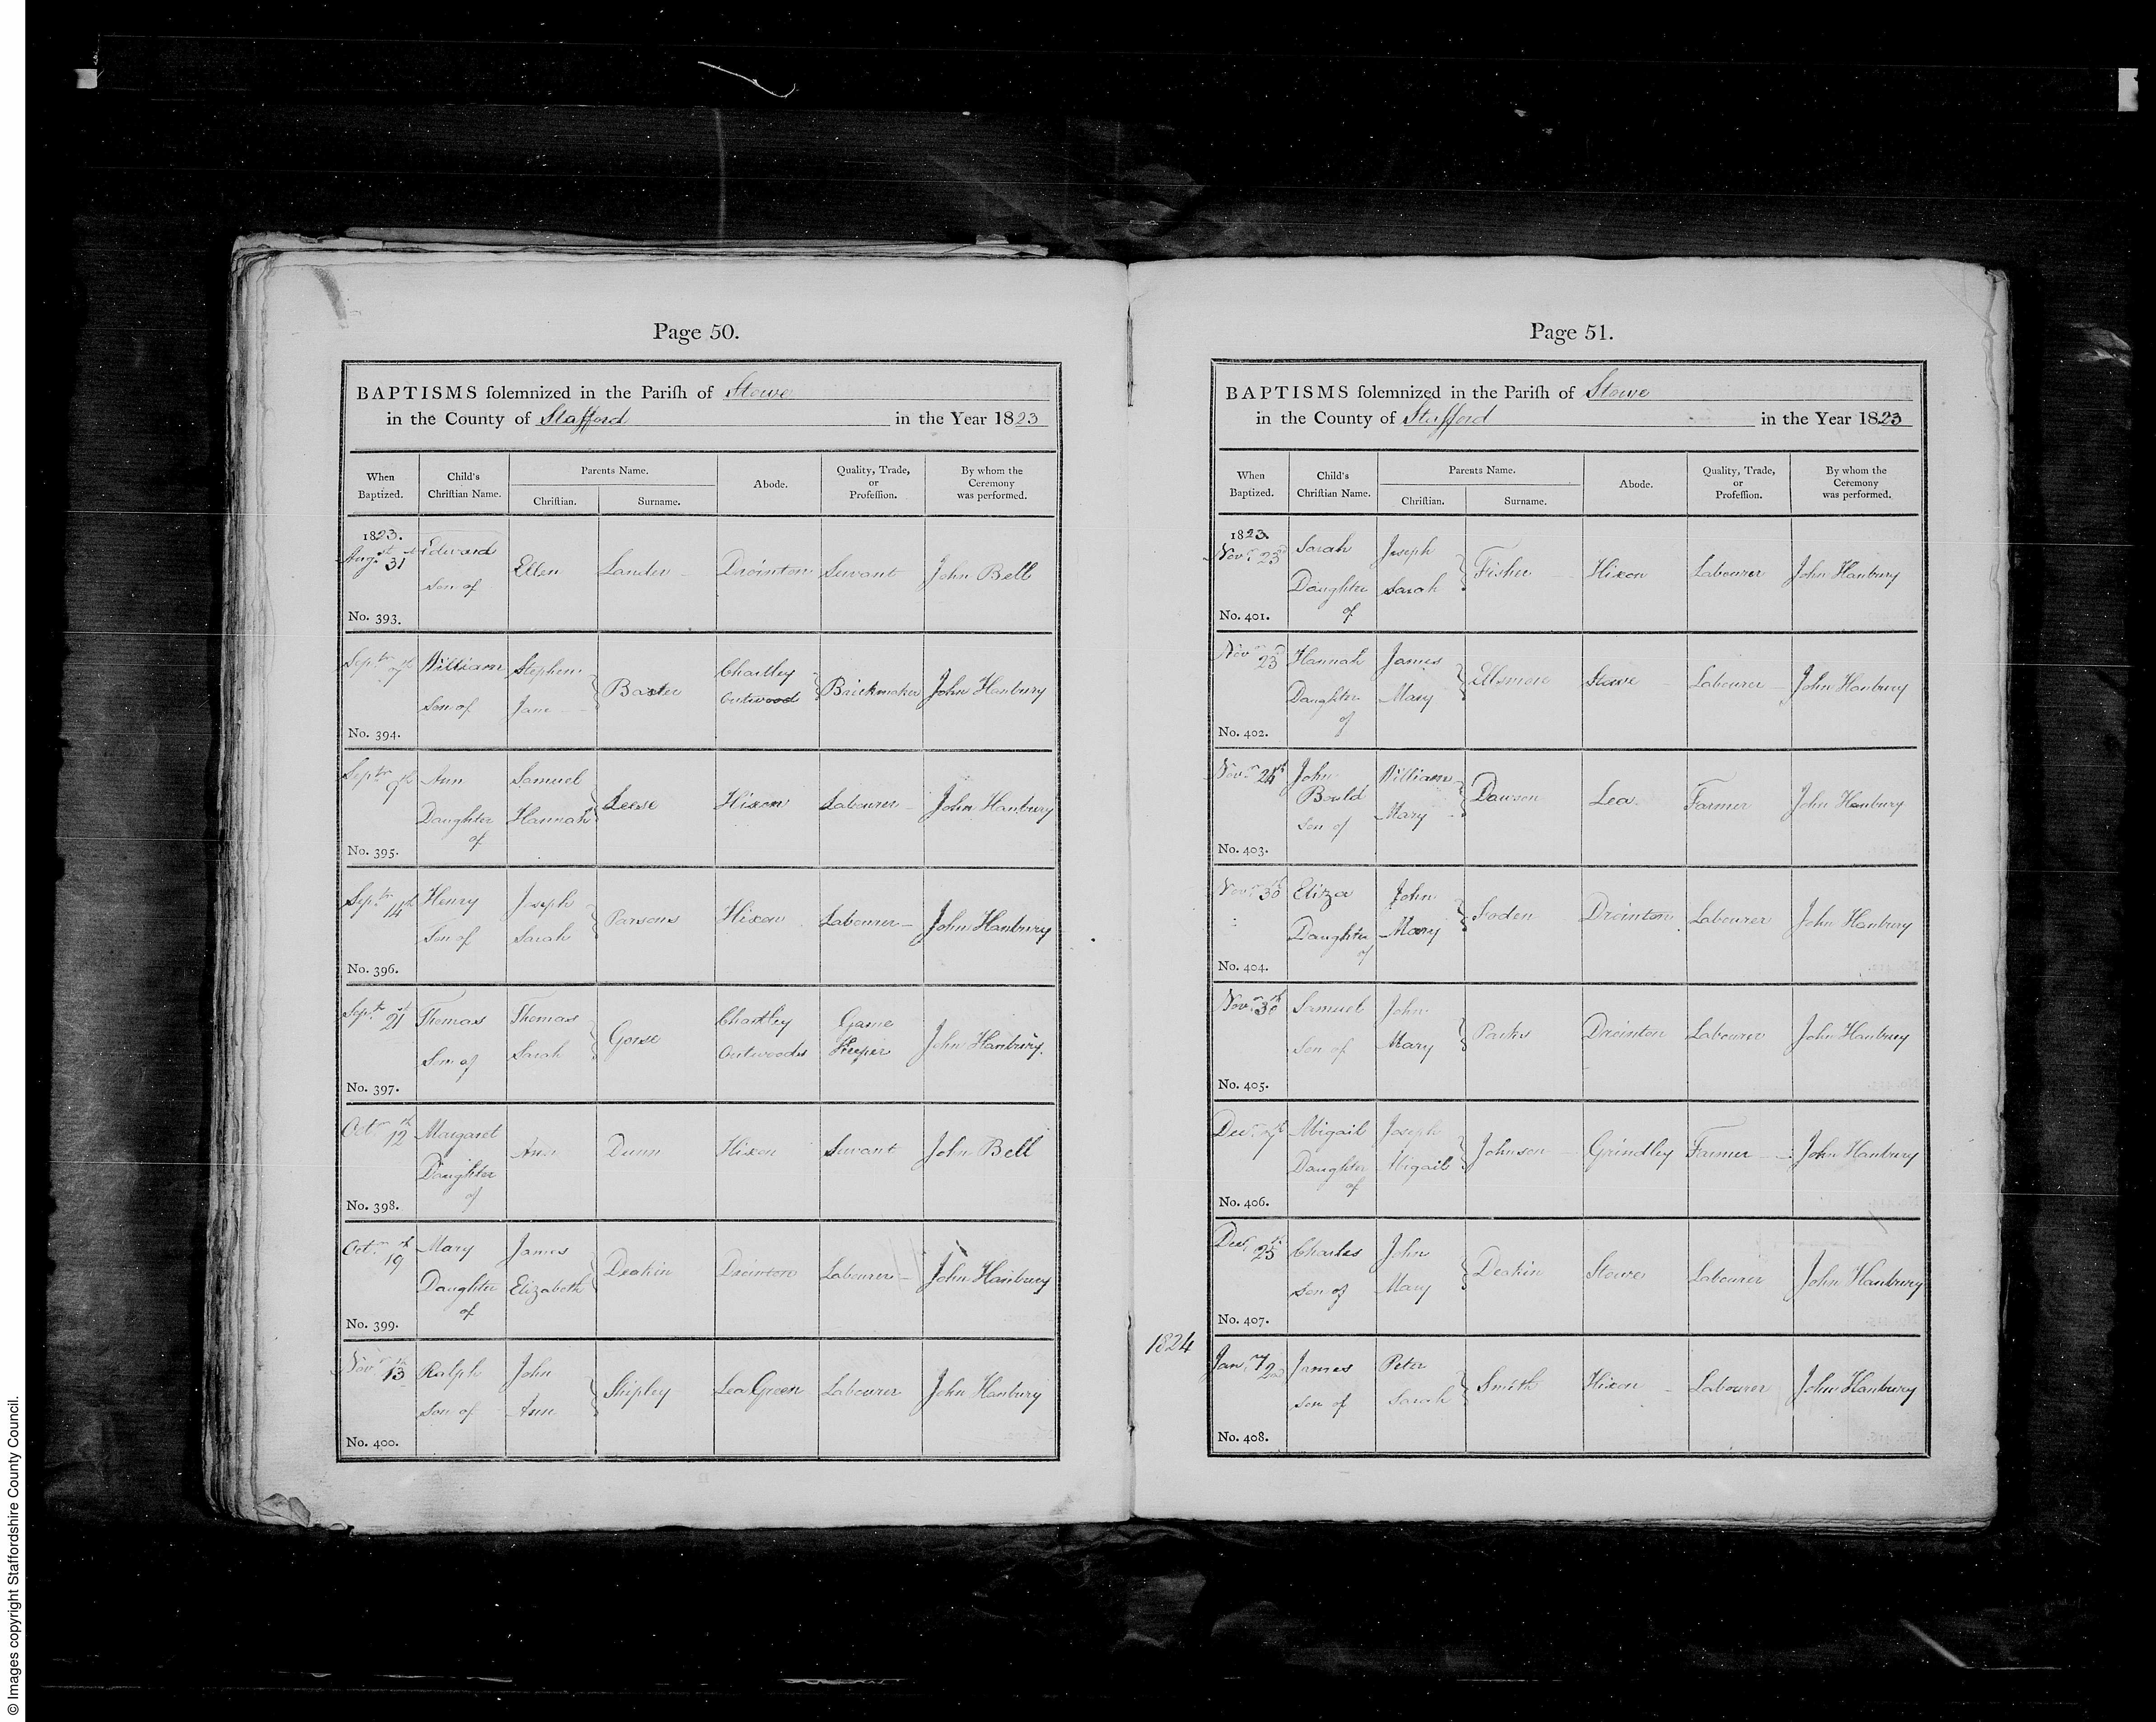 Page 50.
BAPTISMS ſolemnized in the Pariſh of Stowe
in the County of Stafford in the Year 1823
When Baptized. Child's Chriſtian Name. Parents Name. Chriſtian. Surname. Abode. Quality, Trade, or Profeſſion. By whom the Ceremony was performed.
1823.
Augst 31st Edward Son of Ellen Lander Drointon Servant John Bell
No. 393.
Septr 7th William Son of Stephen Jane Baxter Chartley Outwood Brickmaker John Hanbury
No. 394.
Septr 9th Ann Daughter of Samuel Hannah Leese Hixon Labourer John Hanbury
No. 395.
Septr 14th Henry Son of Joseph Sarah Parsons Hixon Labourer John Hanbury
No. 396.
Septr 21st Thomas Son of Thomas Sarah Gorse Chartley Outwoods Game Keeper John Hanbury.
No. 397.
Octr 12th Margaret Daughter of Ann Dunn Hixon Servant John Bell
No. 398.
Octr 19th Mary Daughter of James Elizabeth Deakin Drointon Labourer John Hanbury
No. 399.
Novr 13th Ralph Son of John Ann Shipley Lea Green Labourer John Hanbury
No. 400.
Page 51.
BAPTISMS ſolemnized in the Pariſh of Stowe
in the County of Stafford in the Year 1823
When Baptized. Child's Chriſtian Name. Parents Name. Chriſtian. Surname. Abode. Quality, Trade, or Profeſſion. By whom the Ceremony was performed.
1823.
Novr 23d Sarah Daughter of Joseph Sarah Fisher Hixon Labourer John Hanbury
No. 401.
Novr 23d Hannah Daughter of James Mary Ellsmore Stowe Labourer John Hanbury
No. 402.
Novr John Bould Son of William Mary Dawson Lea Farmer John Hanbury
No. 403.
Novr 30th Eliza Daughter of John Mary Foden Drointon Labourer John Hanbury
No. 404.
Novr 30th Samuel Son of John Mary Drointon Labourer John Hanbury
No. 405.
Decr 7th Abigail Daughter of Joseph Abigail Johnson Grindley Farmer John Hanbury
No. 406.
Decr 25th Charles Son of John Mary Deakin Stowe Labourer John Hanbury
No. 407.
1824
Jany 2nd James Son of Peter Sarah Smith Hixon Labourer John Hanbury
No. 408.
© Images copyright Staffordshire County Council.